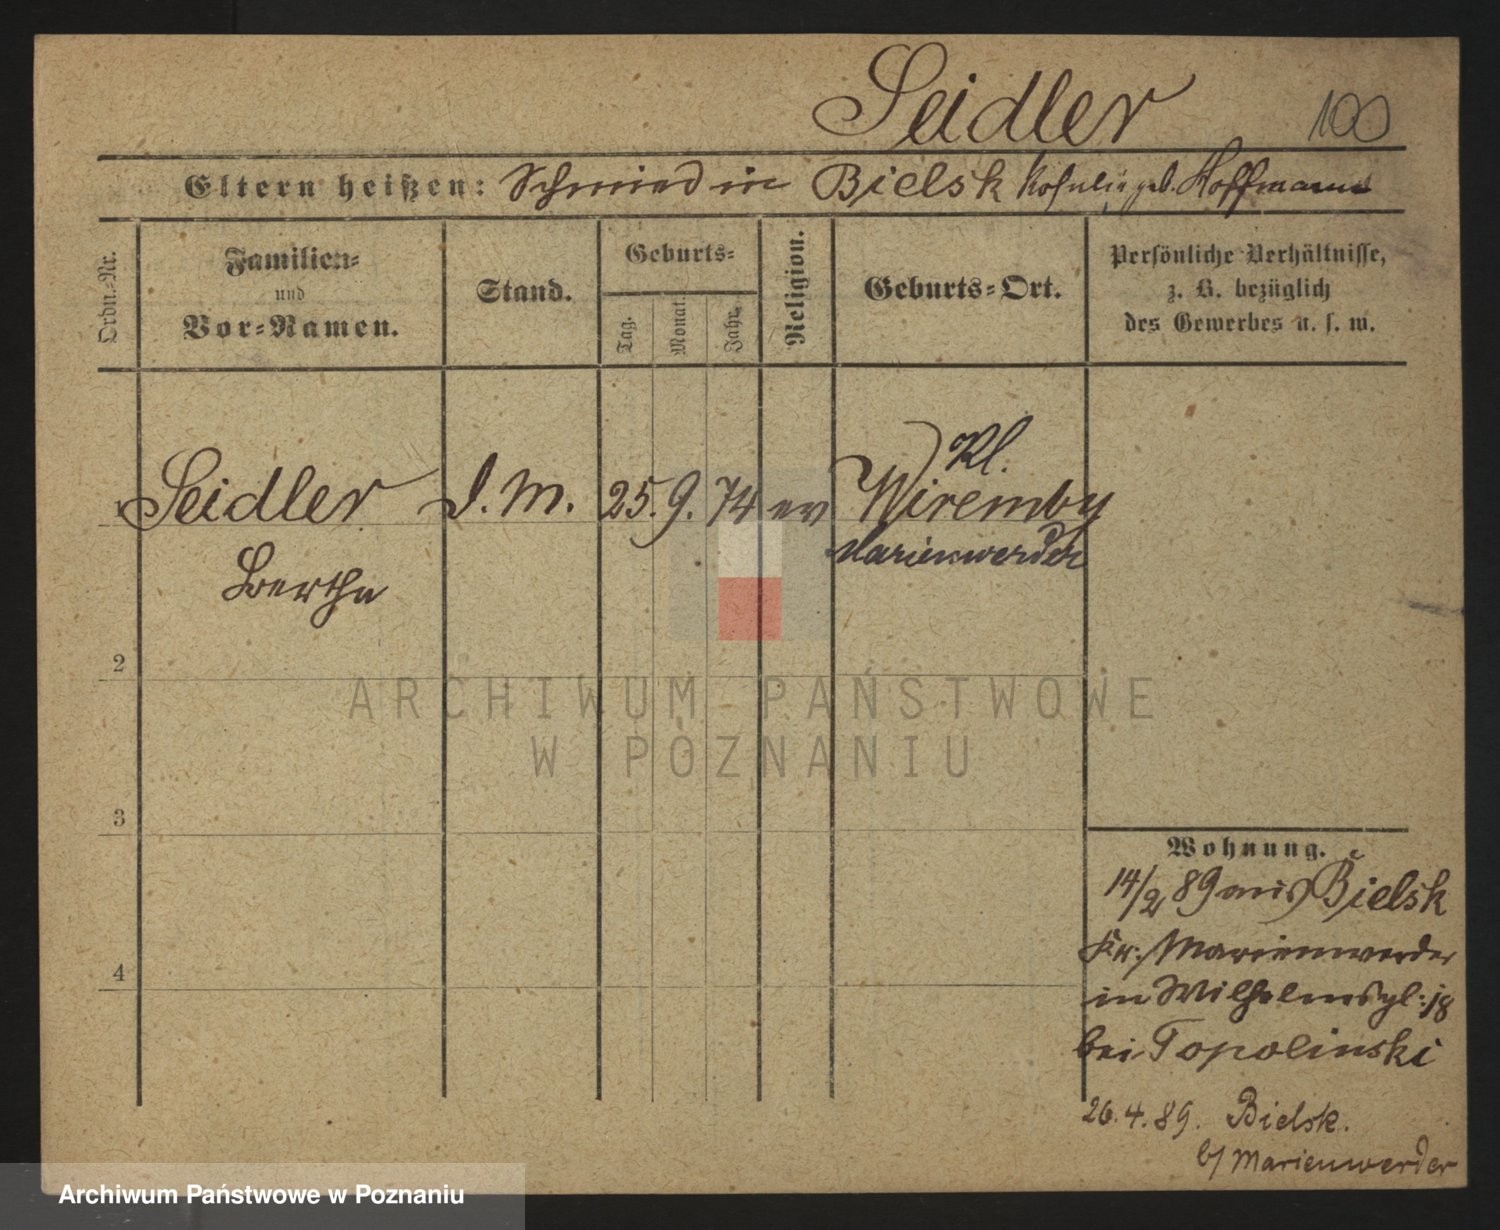 Seidler
100
Eltern heißen: Schmied in Bielsk geb. Hoffmann
Ordn.-Nr.
Familien-
und
Vor-Namen.
Stand.
Geburts-
Tag.
Monat.
Jahr.
Religion.
Geburts-Ort.
Persönliche Verhältnisse,
z. B. bezüglich
des Gewerbes u. s. w.
1 Seidler D. M. 25. 9. 74 ev Kl.
Wiremby
Bertha Marienwerder
2
3
4
Wohnung.
14/2 89 aus Bielsk
Kr. Marienwerder
in Wilhelmspl: 18
bei Topolinski
26.4.89. Bielsk.
b/ Marienwerder
ARCHIWUM PAŃSTWOWE
W POZNANIU
Archiwum Państwowe w Poznaniu